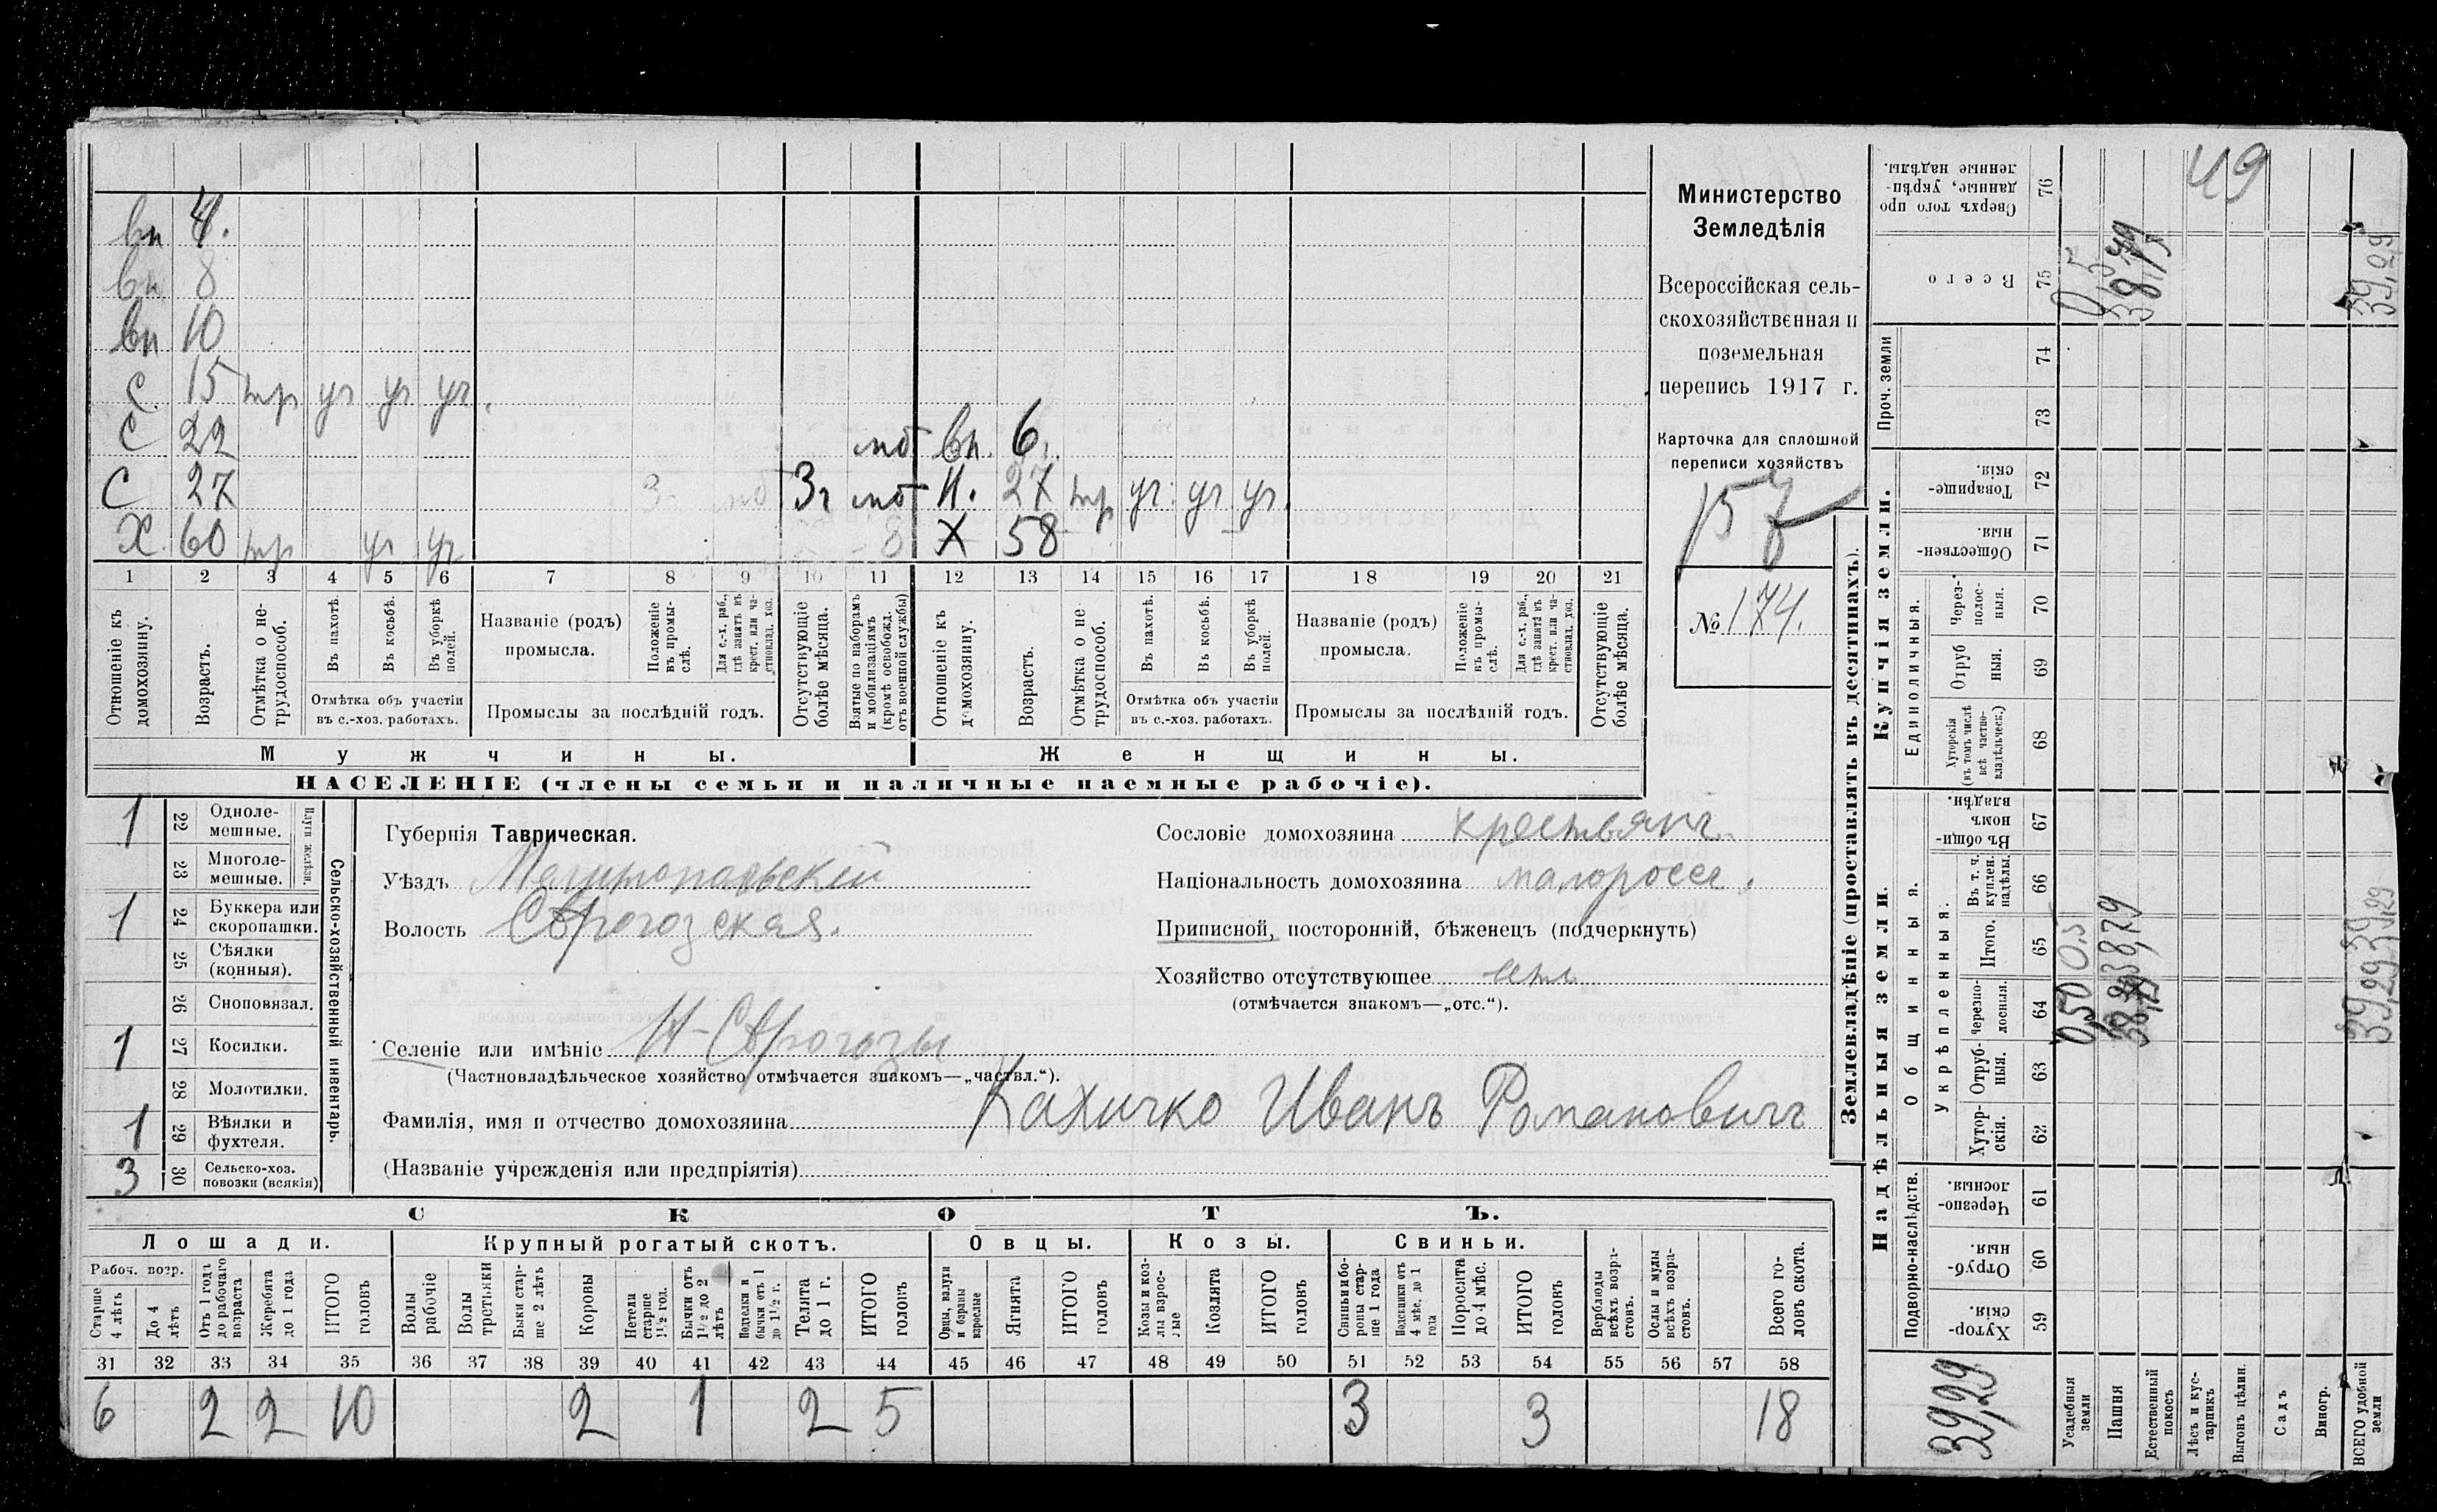 вн 4.
вн 8
вн 10
с. 15 тр уч уч уч.
с 22 мб вн. 6.
С 27 3г мб Н. 27 тр уч. уч уч.
Х. 60 тр уч уч 8 Х 58
1 2 3 4 5 6 7 8 9 10 11 12 13 14 15 16 17 18 19 20 21
Отношеніе къ домохозяину.
Возрастъ.
Отмѣтка о нетрудоспособ.
Въ пахотѣ.
Въ косьбѣ.
Въ уборкѣ полей.
Отмѣтка объ участіи
въ с.-хоз. работахъ.
Названіе (родъ)
промысла.
Положеніе въ промыслѣ.
Для с.-х. раб., гдѣ занятъ въ крест. или частновлад. хоз.
Промыслы за послѣдній годъ.
Отсутствующіе болѣе мѣсяца.
Взятые по наборамъ и мобилизаціямъ (кромѣ освобожд. отъ военной службы)
Отношеніе къ домохозяину.
Возрастъ.
Отмѣтка о нетрудоспособ.
Въ пахотѣ.
Въ косьбѣ.
Въ уборкѣ полей.
Отмѣтка объ участіи
въ с.-хоз. работахъ.
Названіе (родъ)
промысла.
Положеніе въ промыслѣ.
Для с.-х. раб., гдѣ занята въ крест. или частновлад. хоз.
Промыслы за послѣдній годъ.
Отсутствующіе болѣе мѣсяца.
Мужчины.
Женщины.
НАСЕЛЕНІЕ (члены семьи и наличные наемные рабочіе).
Министерство
Земледѣлія
Всероссійская сель-
скохозяйственная и
поземельная
перепись 1917 г.
Карточка для сплошной
переписи хозяйствъ
157
№ 174.
1 22 Одноле-
мешные.
23 Многоле-
мешные.
Плуги желѣзн.
1 24 Буккера или
скоропашки.
25 Сѣялки
(конныя).
26 Сноповязал.
1 27 Косилки.
28 Молотилки.
1 29 Вѣялки и
фухтеля.
3 30 Сельско-хоз.
повозки (всякія)
Сельско-хозяйственный инвентарь.
Губернія Таврическая.
Уѣздъ Мелитопольскій
Волость Сѣрогозская.
Селеніе или имѣніе Н-Сѣрогозы
(Частновладѣльческое хозяйство отмѣчается знакомъ—„частвл.“).
Фамилія, имя и отчество домохозяина Кахичко Иванъ Романовичъ
(Названіе учрежденія или предпріятія)
Сословіе домохозяина крестьянг.
Національность домохозяина малороссъ.
Приписной, посторонній, бѣженецъ (подчеркнуть)
Хозяйство отсутствующее
(отмѣчается знакомъ—„отс.“).
СКОТЪ.
Лошади. Крупный рогатый скотъ. Овцы. Козы. Свиньи.
Рабоч. возр.
Старше 4 лѣтъ
До 4 лѣтъ
Отъ 1 года до рабочаго возраста
Жеребята до 1 года
ИТОГО головъ
Волы рабочіе
Волы третьяки
Быки старше 2 лѣтъ
Коровы
Нетели старше 1½ год.
Бычки отъ 1½ до 2 лѣтъ
Подтелки и бычки отъ 1 до 1½ г.
Телята до 1 г.
ИТОГО головъ
Овцы, валухи и бараны взрослые
Ягнята
ИТОГО головъ
Козы и козлы взрослые
Козлята
ИТОГО головъ
Свиньи и боровы старше 1 года
Подсвинки отъ 4 мѣс. до 1 года
Поросята до 4 мѣс.
ИТОГО головъ
Верблюды всѣхъ возрастовъ.
Ослы и мулы всѣхъ возрастовъ.
Всего головъ скота.
31 32 33 34 35 36 37 38 39 40 41 42 43 44 45 46 47 48 49 50 51 52 53 54 55 56 57 58
6 2 2 10 2 1 2 5 3 3 18
Землевладѣніе (проставлять въ десятинахъ).
Надѣльныя земли.
Купчія земли.
Проч. земли
Подворно-наслѣдств.
Общинныя.
Укрѣпленныя.
Единоличныя.
Хуторскія 59
Отрубныя 60
Черезполосныя. 61
Хуторскія. 62
Отрубныя. 63
Черезполосныя. 64
Итого. 65
Въ т. ч. куплен. надѣлы. 66
Въ общинномъ владѣн. 67
Хуторскія (въ томъ числѣ всѣ частновладѣльческ.) 68
Отрубныя. 69
Черезполосныя. 70
Общественныя. 71
Товарищескія. 72
73
74
Всего 75
Сверхъ того проданные, укрѣпленные надѣлы. 76
39,29
Усадебныя земли 0,50 0,5 0,5
Пашня 38,79 38,79
Естественный покосъ
Лѣсъ и кустарникъ
Выгонъ цѣлин.
Садъ
Виногр.
ВСЕГО удобной земли 39,29 39,29 39,29
49